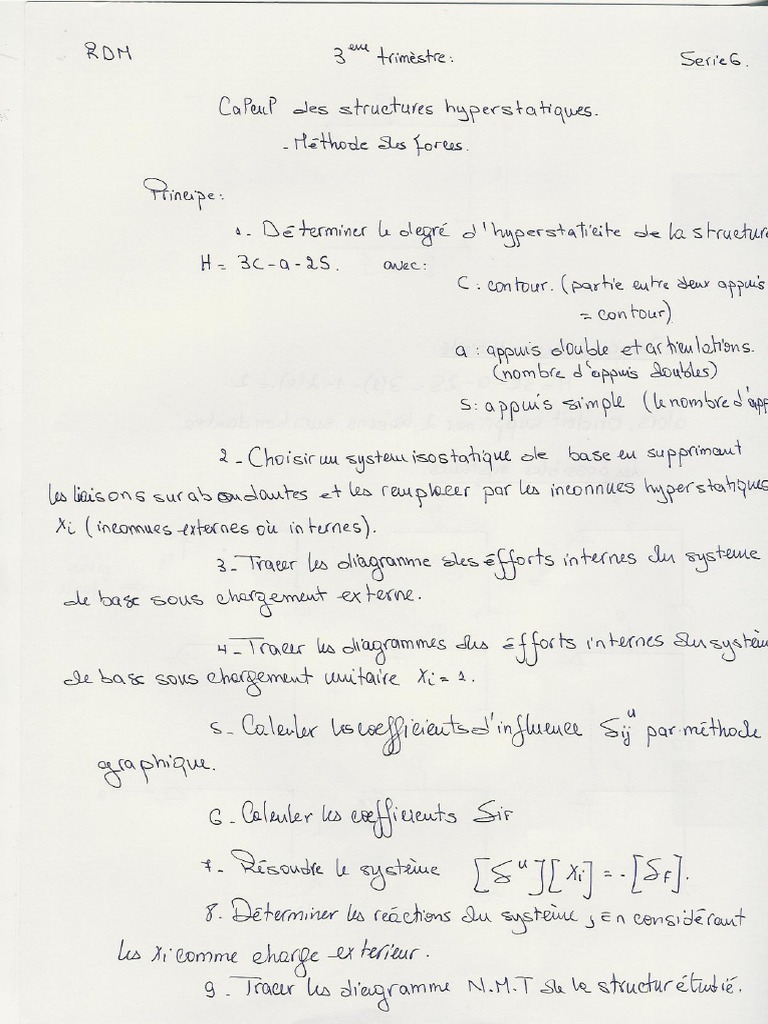 RDM 3eme trimèstre: Serie 6.
Calcul des structures hyperstatiques.
- Méthode des forces.
Principe:
1- Déterminer le degré d'hyperstaticite de la structure
H = 3C - a - 2S. avec:
C: contour. (partie entre deux appuis
= contour)
a: appuis double et articulations.
(nombre d'appuis doubles)
S: appuis simple (le nombre d'app
2- Choisir un system isostatique de base en supprimant
les liaisons surabondantes et les remplacer par les inconnues hyperstatiques
Xi (inconnues externes où internes).
3- Tracer les diagramme des éfforts internes du systeme
de base sous chargement externe.
4- Tracer les diagrammes des éfforts internes du systèm
de base sous chargement unitaire Xi = 1.
5- Calculer les coefficients d'influence δij^u par méthode
graphique.
6- Calculer les coefficients δiF
7- Résoudre le système [δ^u][Xi] = -[δF].
8. Déterminer les reáctions du système, En considérant
les Xi comme charge exterieur.
9- Tracer les diagramme N.M.T de la structur étudié.